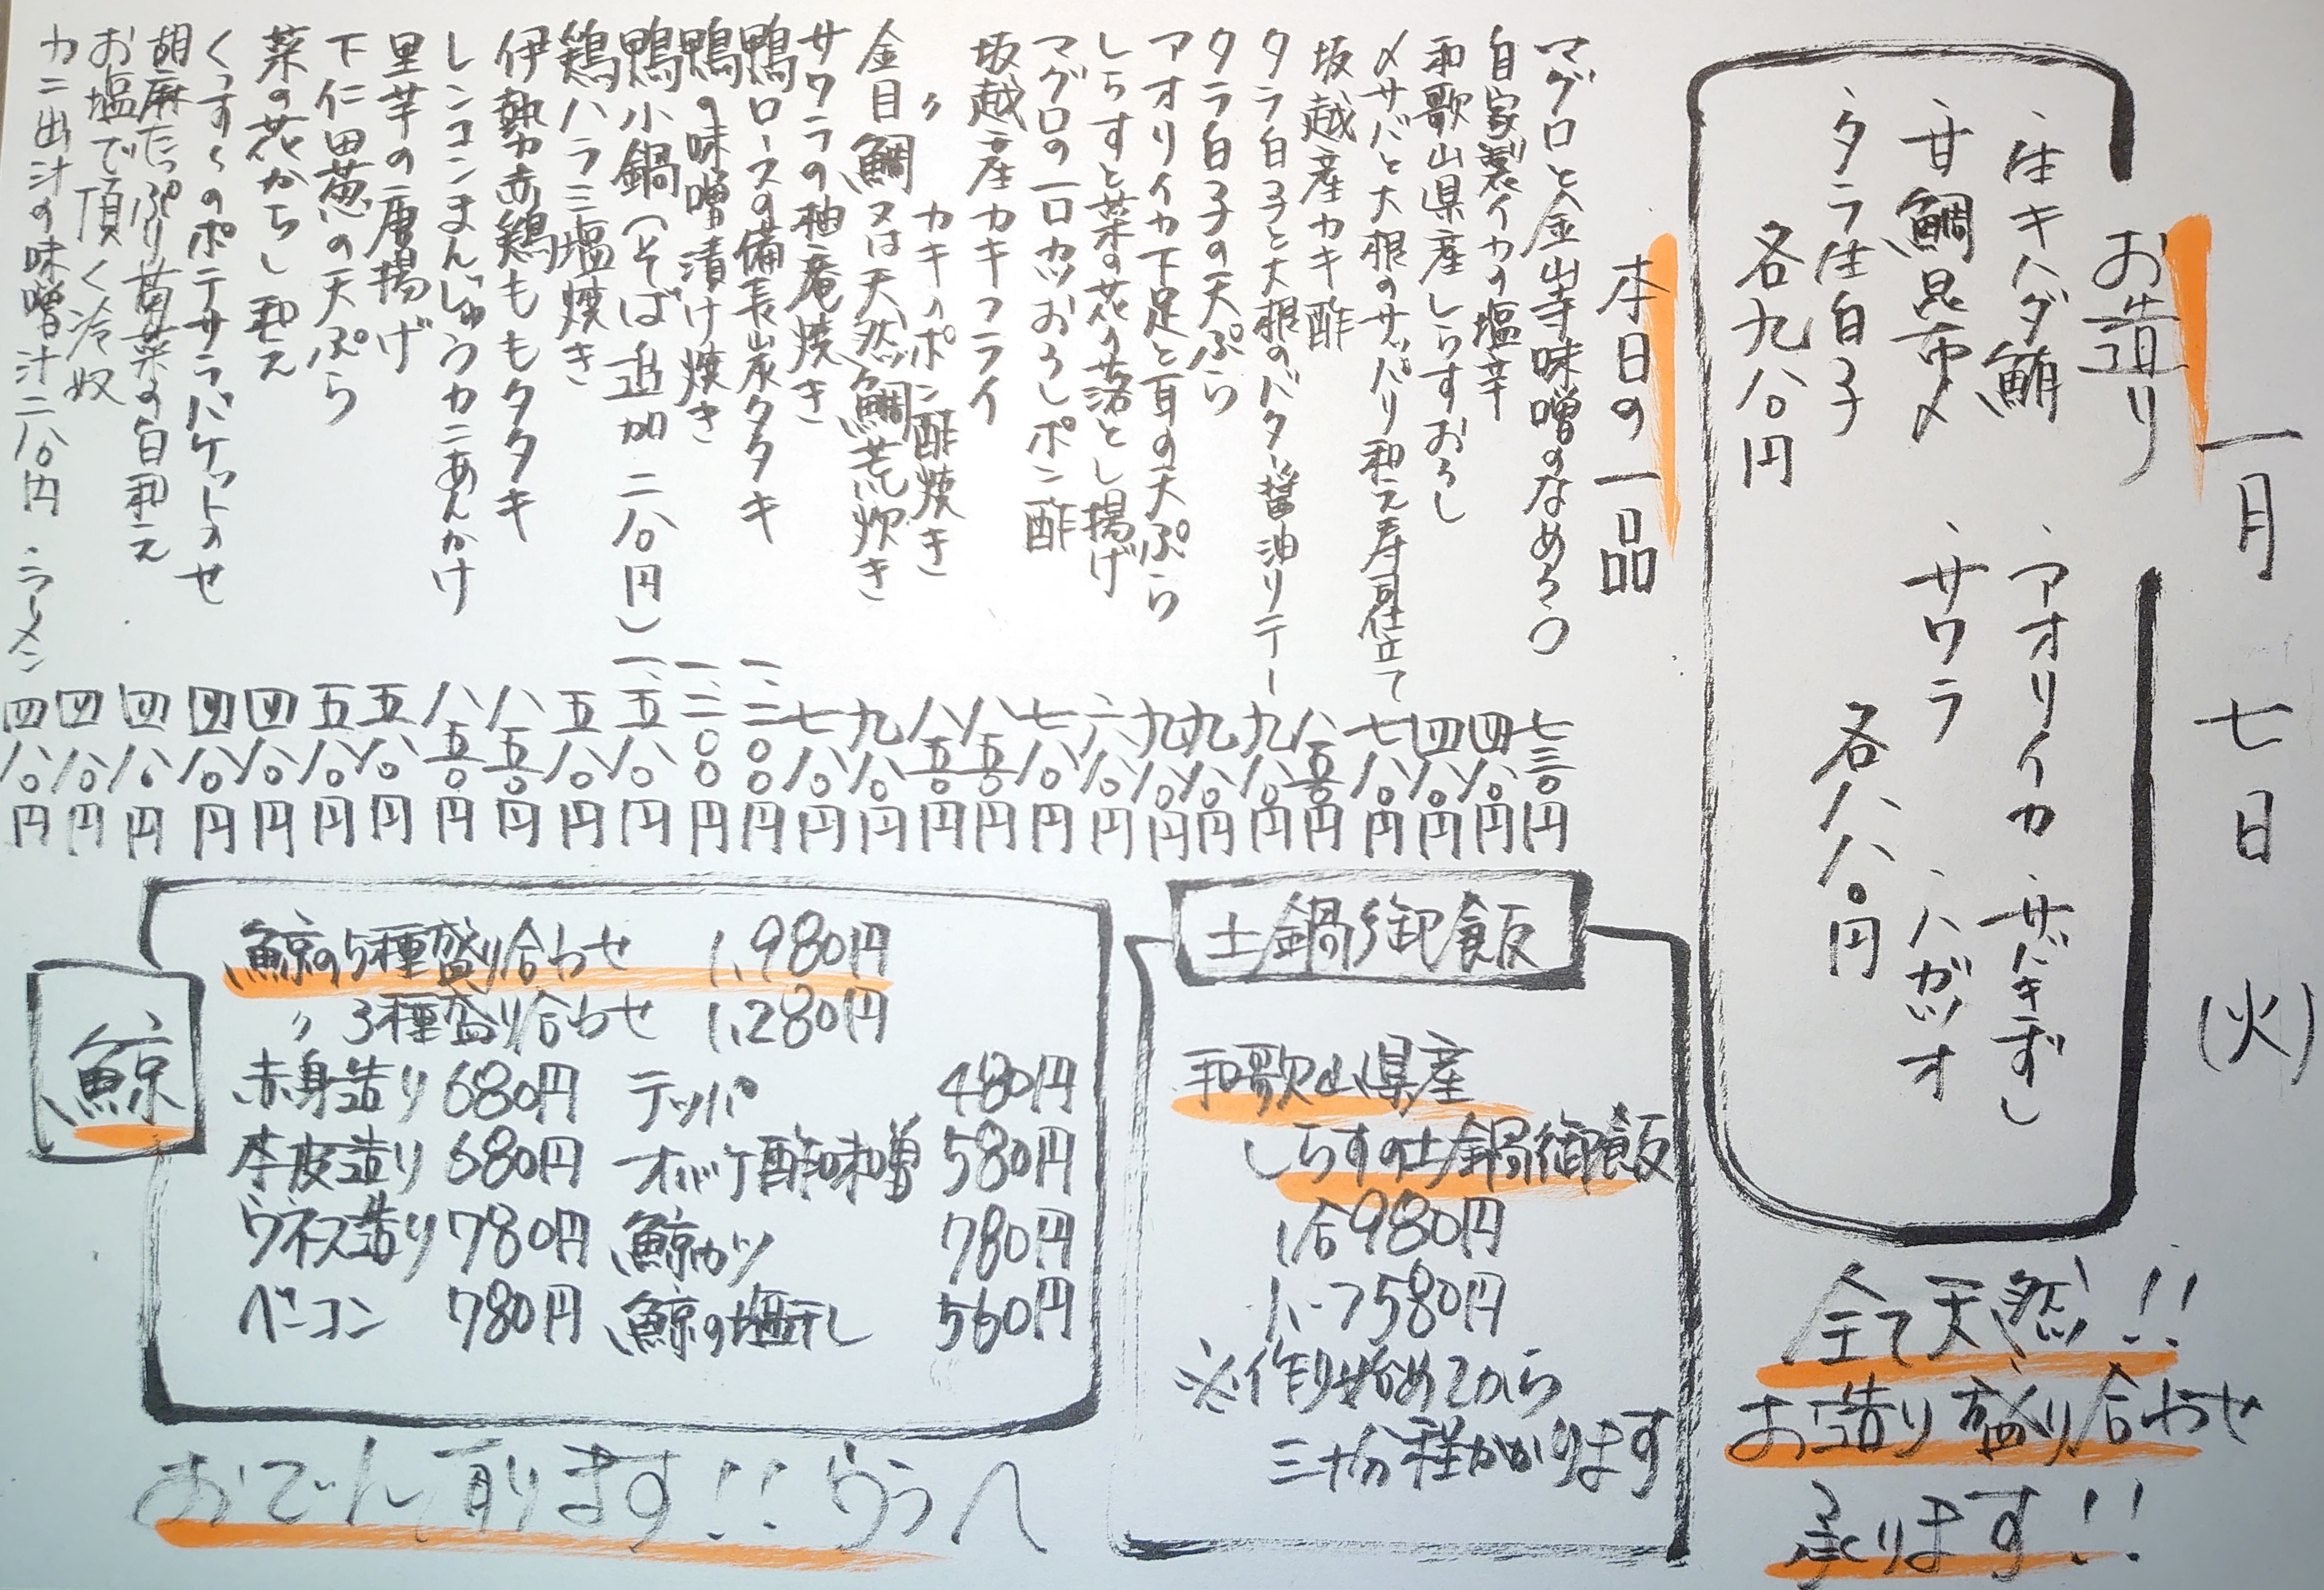 一月 七日 (火)
お造り
・生キハダ鮪 ・アオリイカ ・サバきずし
・甘鯛昆布〆 ・サワラ ・ハガツオ
・タラ生白子 各八八〇円
各九八〇円
全て天然!!
お造り盛り合わせ
承ります!!
本日の一品
マグロと金山寺味噌のなめろう 七三〇円
自家製イカの塩辛 四八〇円
和歌山県産しらすおろし 四八〇円
〆サバと大根のサッパリ和え寿司仕立て 七八〇円
坂越産カキ酢 八五〇円
タラ白子と大根のバター醤油ソテー 九八〇円
タラ白子の天ぷら 九八〇円
アオリイカ下足と耳の天ぷら 九八〇円
しらすと菜の花の落とし揚げ 六八〇円
マグロの一口カツおろしポン酢 七八〇円
坂越産カキフライ 八五〇円
〃 カキのポン酢焼き 八五〇円
金目鯛又は天然鯛荒炊き 九八〇円
サワラの柚庵焼き 七八〇円
鴨ロースの備長炭タタキ 一、二〇〇円
鴨の味噌漬け焼き 一、二〇〇円
鴨小鍋(そば追加二八〇円) 一、五八〇円
鶏ハラミ塩焼き 五八〇円
伊勢赤鶏ももタタキ 八五〇円
レンコンまんじゅうカニあんかけ 八五〇円
里芋の唐揚げ 五八〇円
下仁田葱の天ぷら 五八〇円
菜の花からし和え 四八〇円
くんすくのポテサラバケットのせ 四八〇円
胡麻たっぷり菊菜の白和え 四八〇円
お塩で頂く冷奴 四八〇円
カニ出汁の味噌汁二八〇円 ラーメン 四八〇円
土鍋御飯
和歌山県産
しらすの土鍋御飯
1合980円
ハーフ580円
※作り始めてから
三十分程かかります
鯨
鯨の5種盛り合わせ 1,980円
〃 3種盛り合わせ 1,280円
赤身造り 680円 テッパ 480円
本皮造り 680円 オバケ酢味噌 580円
ウネス造り 780円 鯨カツ 780円
ベーコン 780円 鯨の塩干し 560円
おでん有ります!!うらへ